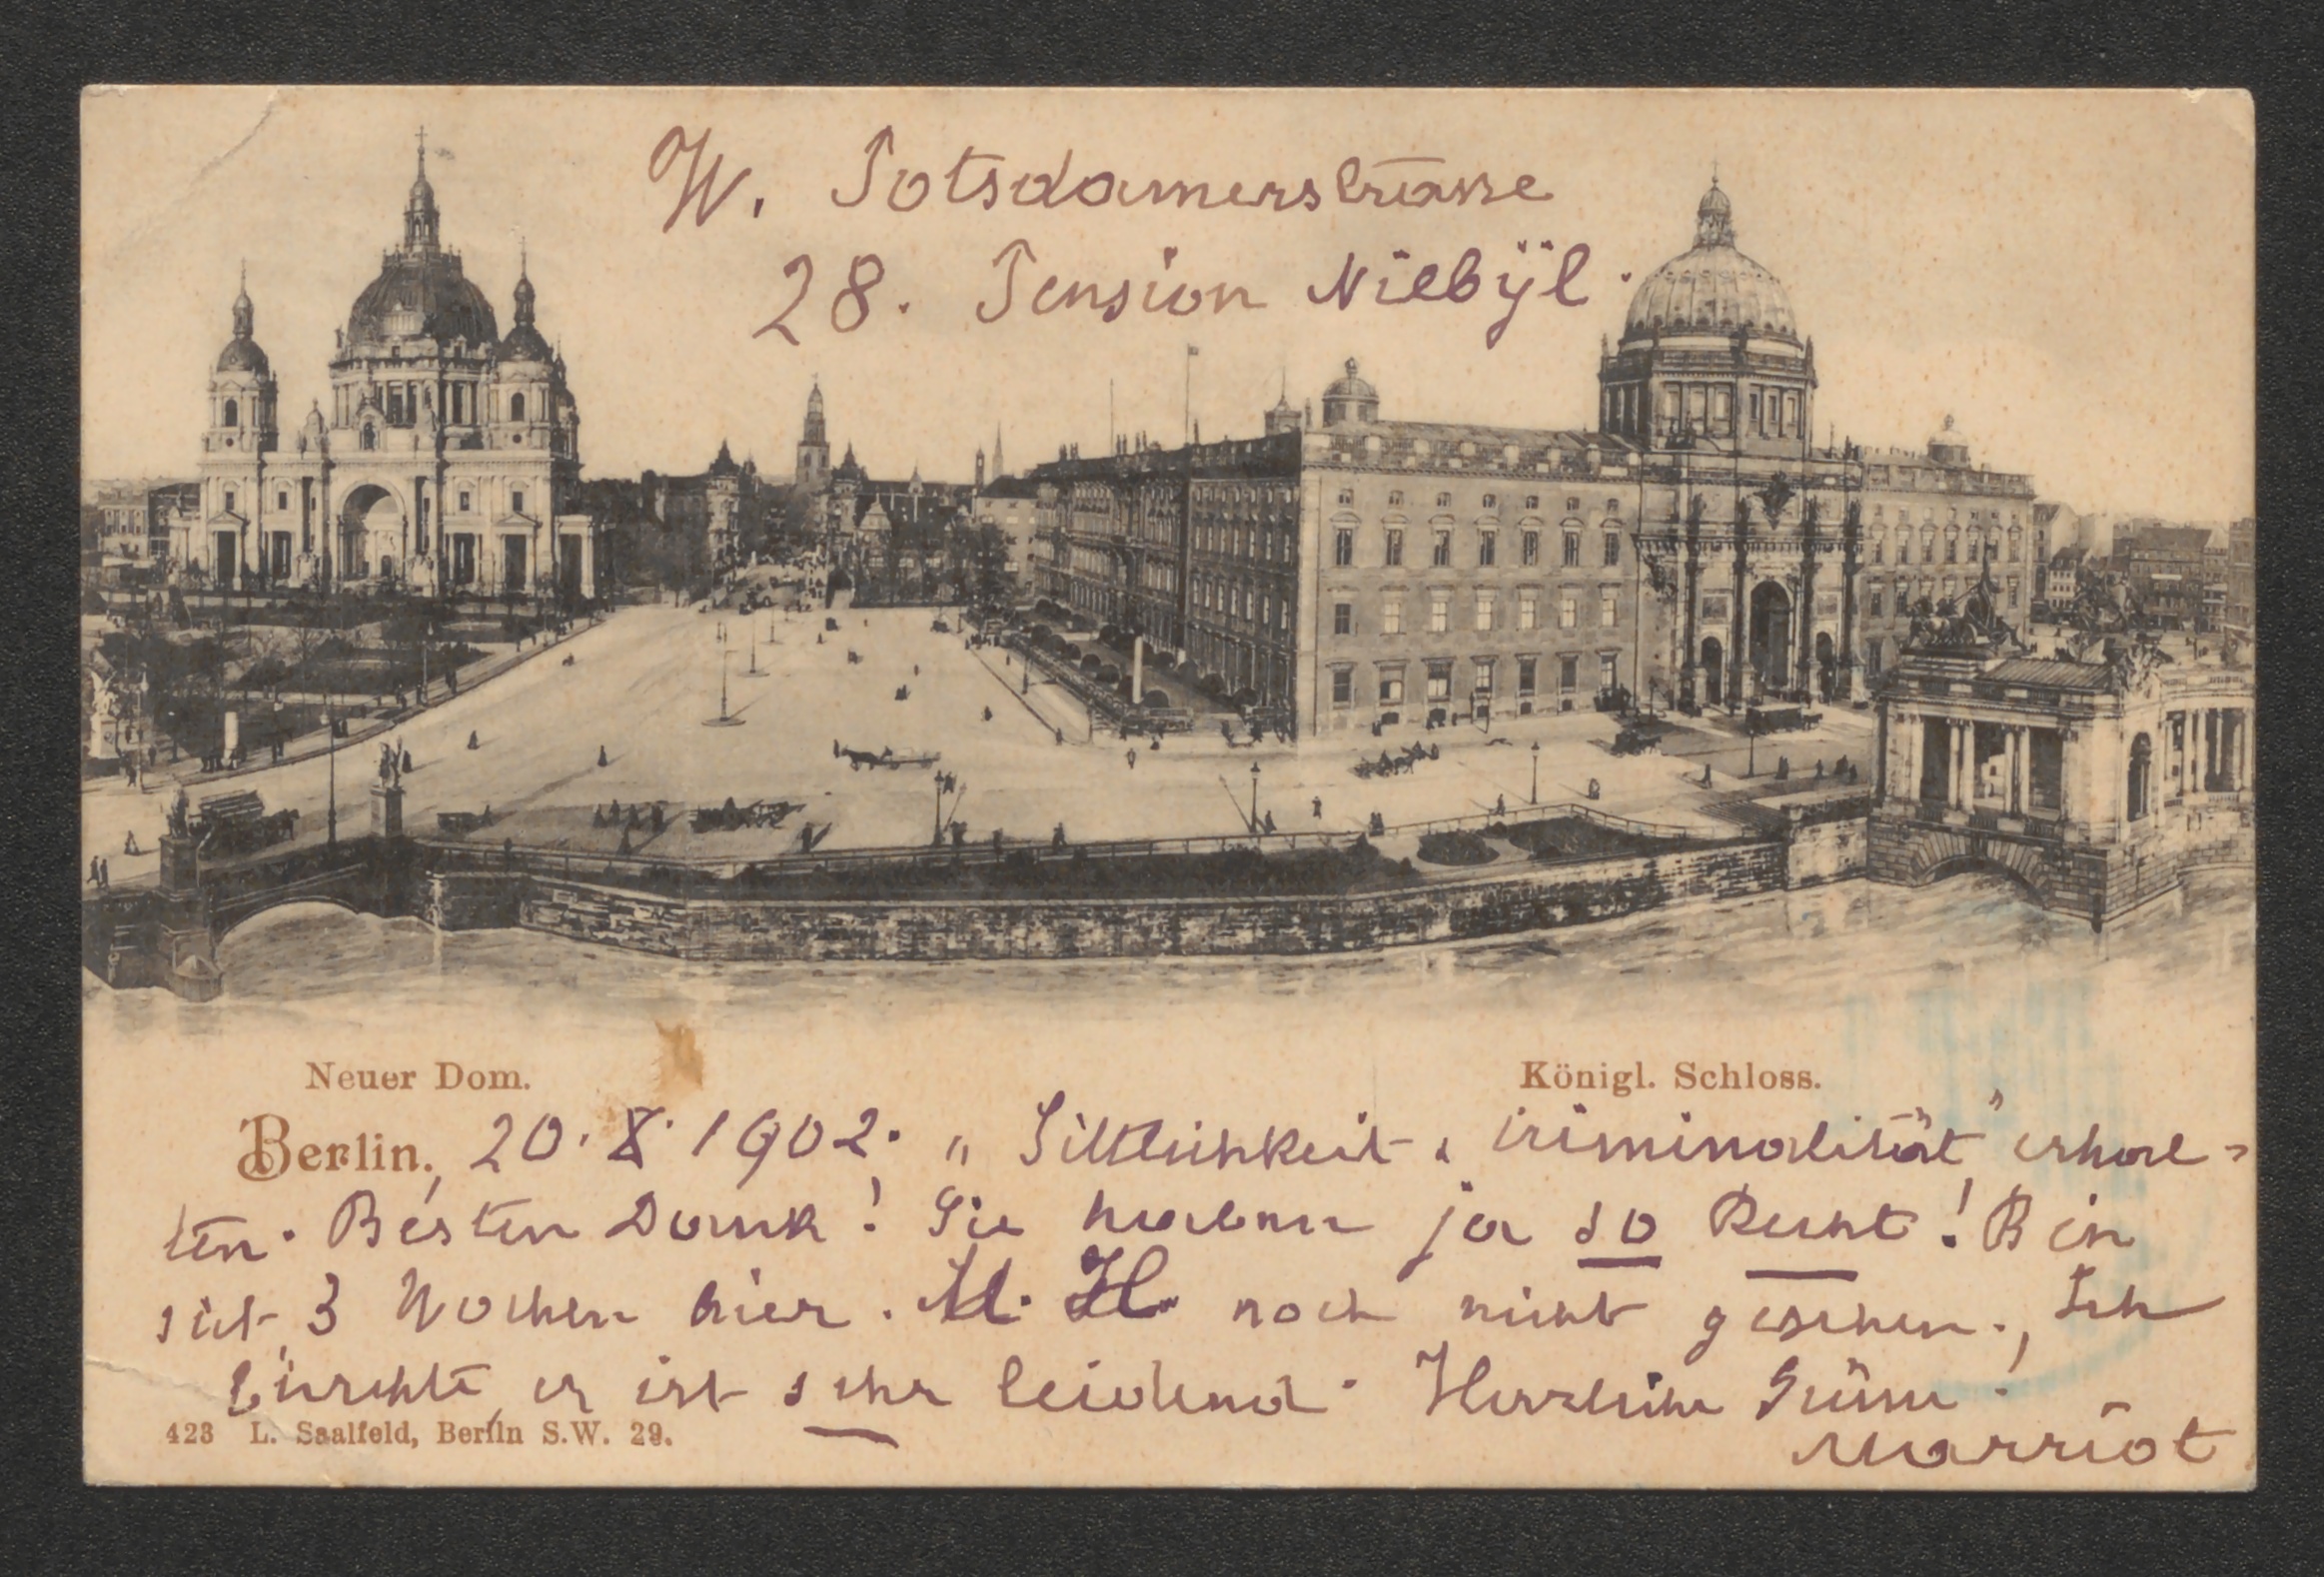 W. Potsdamerstrasse
28. Pension Niebÿl.
Neuer Dom.
Königl. Schloss.
Berlin, 20. X. 1902. „Sittlichkeit u. Criminalität" erhal-
ten. Besten Dank! Sie haben ja so Recht! Bin
seit 3 Wochen hier. M. H. noch nicht gesehen. Ich
fürchte, er ist sehr leidend. Herzliche Grüsse!
423 L. Saalfeld, Berlin S.W. 29.
Marriot